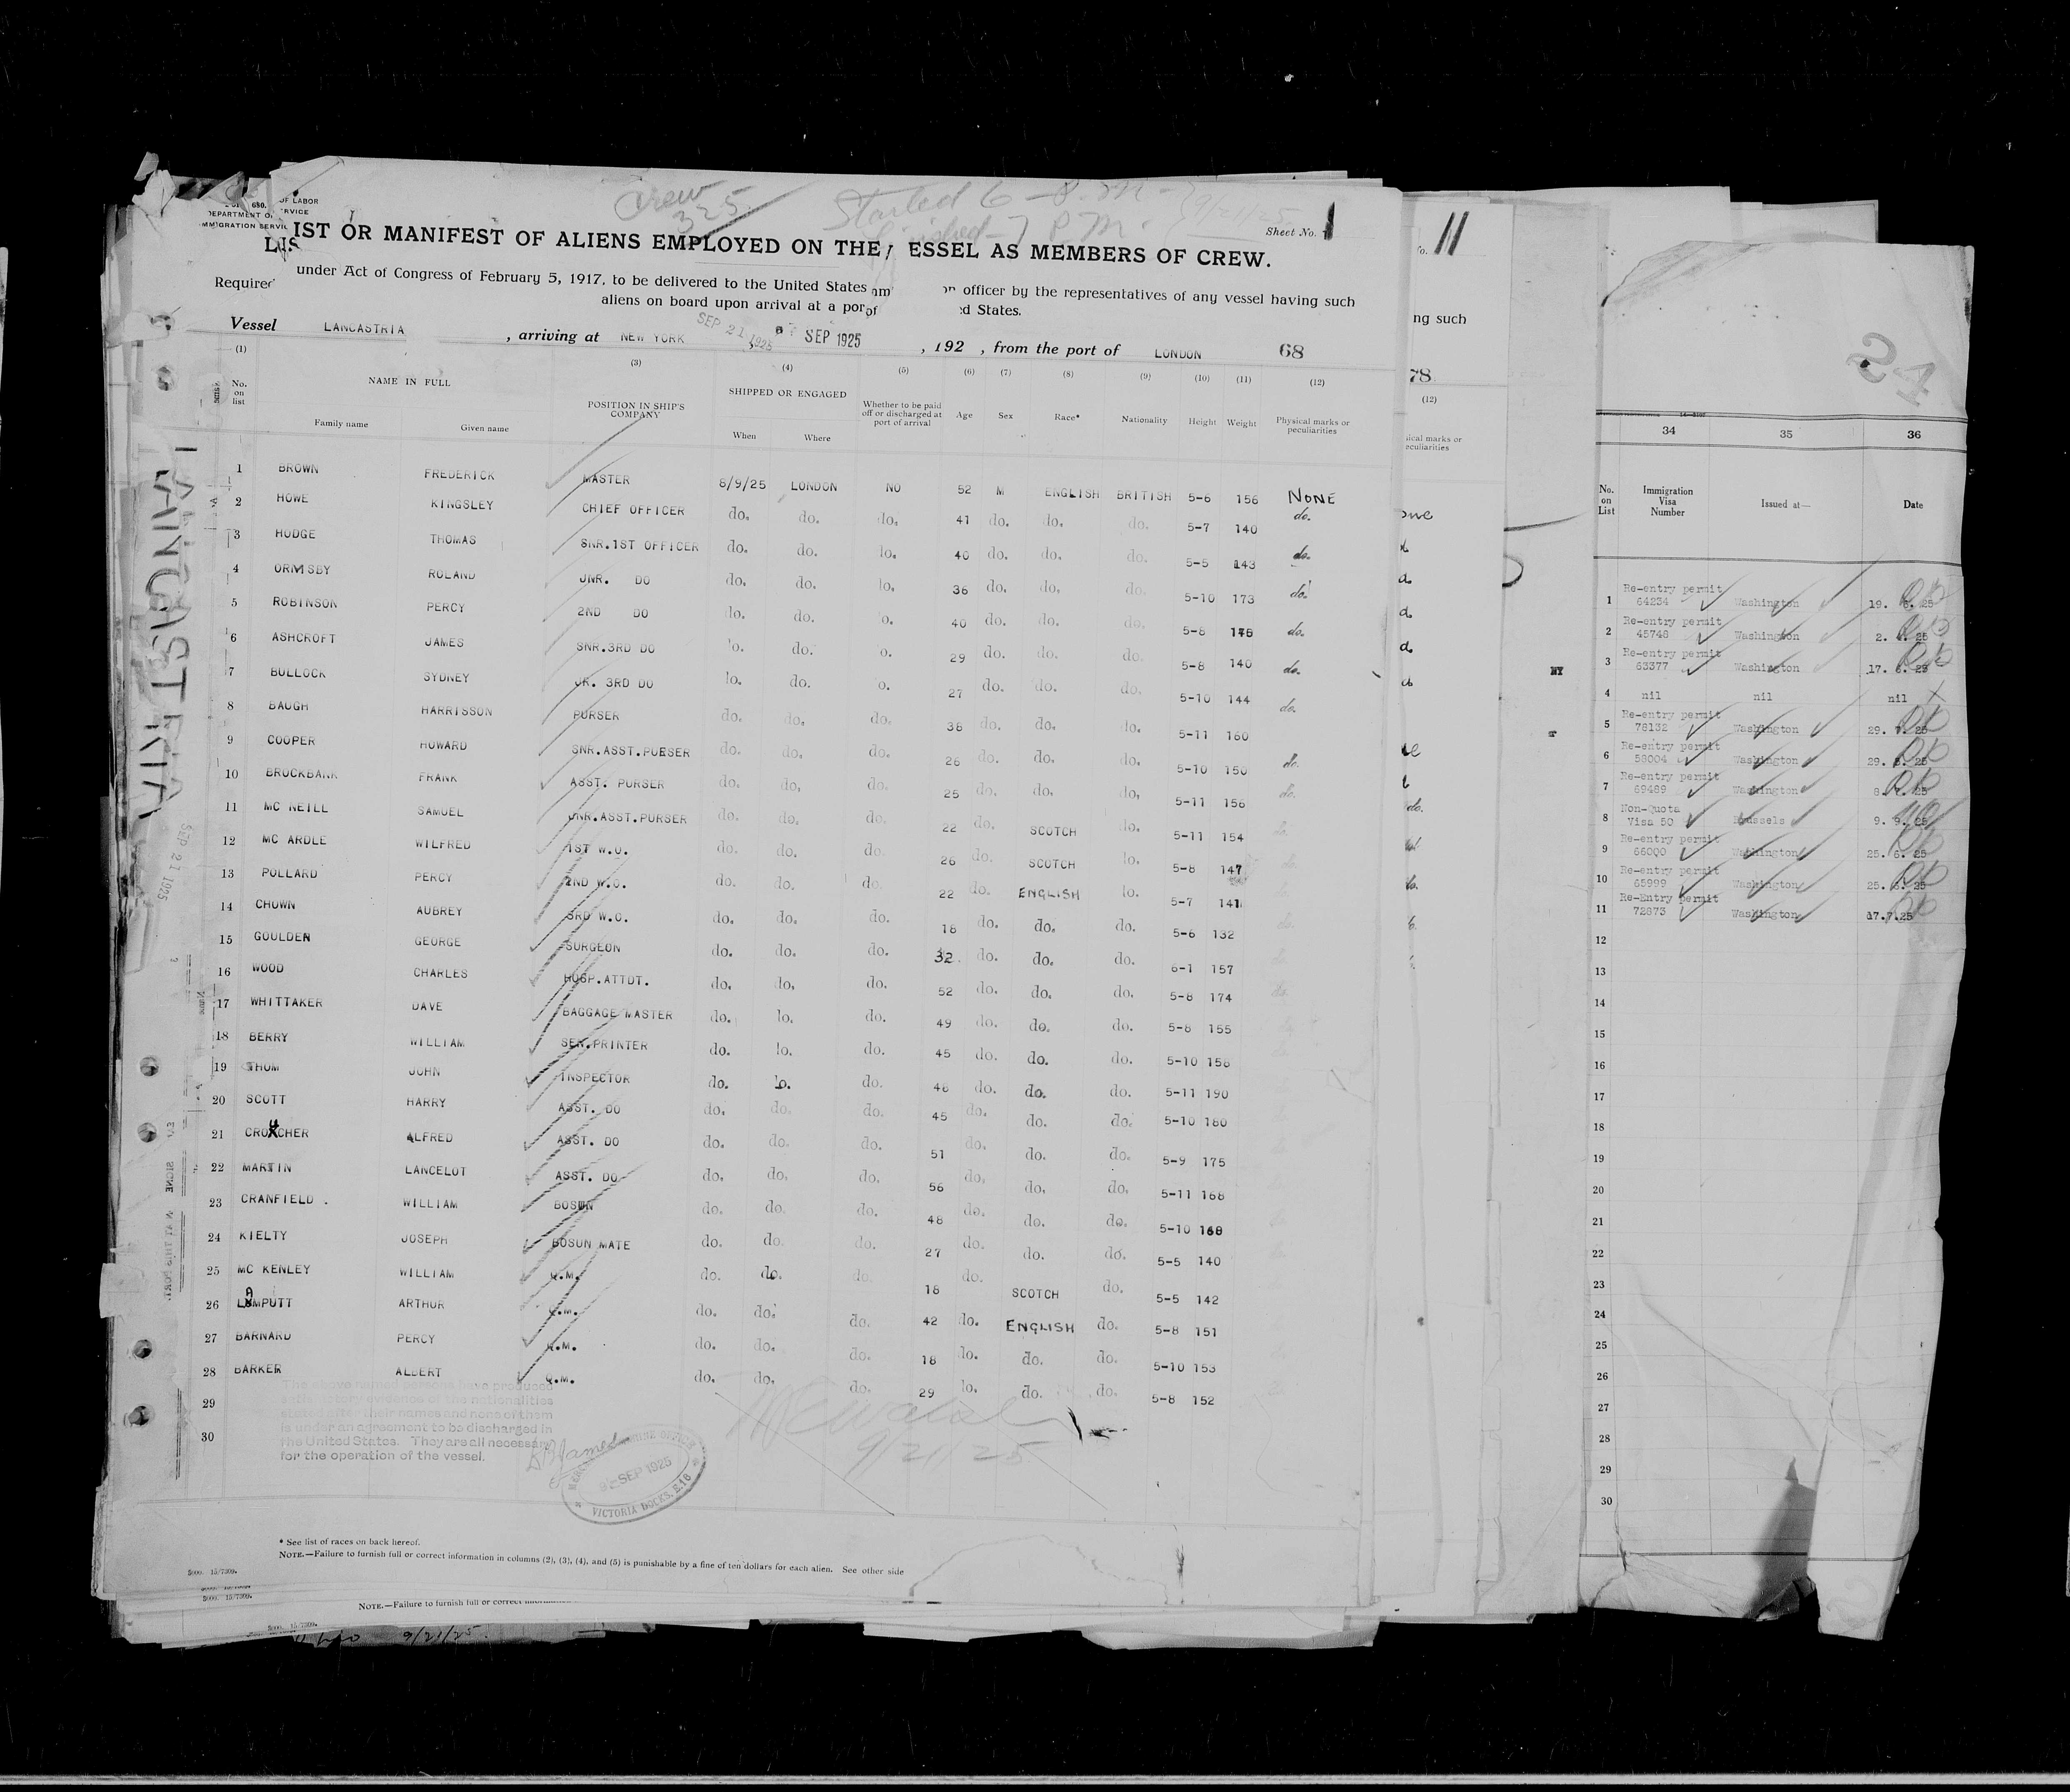 Crew
325
Started 6 - P.M. 9/21/25
finished - 7 P.M.
680.
OF LABOR
DEPARTMENT OF
IMMIGRATION SERVIC
RVICE
Sheet No. 1
LIST OR MANIFEST OF ALIENS EMPLOYED ON THE ESSEL AS MEMBERS OF CREW.
Required under Act of Congress of February 5, 1917, to be delivered to the United States officer by the representatives of any vessel having such
aliens on board upon arrival at a port of d States.
Vessel LANCASTRIA , arriving at NEW YORK SEP 21 1925 SEP 1925 , 192 , from the port of LONDON 68
(1) (3) (4) (5) (6) (7) (8) (9) (10) (11) (12)
No. on list NAME IN FULL Family name Given name POSITION IN SHIP'S COMPANY SHIPPED OR ENGAGED When Where Whether to be paid off or discharged at port of arrival Age Sex Race* Nationality Height Weight Physical marks or peculiarities
1 BROWN FREDERICK MASTER 8/9/25 LONDON NO 52 M ENGLISH BRITISH 5-6 156 NONE
2 HOWE KINGSLEY CHIEF OFFICER do. do. do. 41 do. do. do. 5-7 140 do.
3 HODGE THOMAS SNR.1ST OFFICER do. do. do. 40 do. do. do. 5-5 143 do.
4 ORMSBY ROLAND JNR. DO do. do. do. 36 do. do. do. 5-10 173 do.
5 ROBINSON PERCY 2ND DO do. do. do. 40 do. do. do. 5-8 do.
6 ASHCROFT JAMES SNR.3RD DO do. do. do. 29 do. do. do. 5-8 140 do.
7 BULLOCK SYDNEY JR. 3RD DO do. do. do. 27 do. do. do. 5-10 144 do.
8 BAUGH HARRISSON PURSER do. do. do. 38 do. do. do. 5-11 160
9 COOPER HOWARD SNR.ASST.PURSER do. do. do. 26 do. do. do. 5-10 150 do.
10 BROCKBANK FRANK ASST. PURSER do. do. do. 25 do. do. do. 5-11 156 do.
11 MC NEILL SAMUEL JNR.ASST.PURSER do. do. do. 22 do. SCOTCH do. 5-11 154 do.
12 MC ARDLE WILFRED 1ST W.O. do. do. do. 26 do. SCOTCH do. 5-8 147 do.
13 POLLARD PERCY 2ND W.O. do. do. do. 22 do. ENGLISH do. 5-7 141 do.
14 CHOWN AUBREY 3RD W.O. do. do. do. 18 do. do. do. 5-6 132 do.
15 GOULDEN GEORGE SURGEON do. do. do. 32 do. do. do. 6-1 157 do.
16 WOOD CHARLES HOSP.ATTDT. do. do. do. 52 do. do. do. 5-8 174 do.
17 WHITTAKER DAVE BAGGAGE MASTER do. do. do. 49 do. do. do. 5-8 155
18 BERRY WILLIAM SEN.PRINTER do. do. do. 45 do. do. do. 5-10 158
19 THOM JOHN INSPECTOR do. do. do. 48 do. do. do. 5-11 190
20 SCOTT HARRY ASST. DO do. do. do. 45 do. do. do. 5-10 180
21 CROUCHER ALFRED ASST. DO do. do. do. 51 do. do. do. 5-9 175
22 MARTIN LANCELOT ASST. DO do. do. do. 56 do. do. do. 5-11 168
23 CRANFIELD . WILLIAM BOSUN do. do. do. 48 do. do. do. 5-10 168
24 KIELTY JOSEPH BOSUN MATE do. do. do. 27 do. do. do. 5-5 140
25 MC KENLEY WILLIAM Q.M. do. do. do. 18 do. SCOTCH do. 5-5 142
26 LAMPUTT ARTHUR Q.M. do. do. do. 42 do. ENGLISH do. 5-8 151
27 BARNARD PERCY Q.M. do. do. do. 18 do. do. do. 5-10 153
28 BARKER ALBERT Q.M. do. do. do. 29 do. do. do. 5-8 152
29
30
The above named persons have produced
satisfactory evidence of the nationalities
stated after their names and none of them
is under an agreement to be discharged in
the United States. They are all necessary
for the operation of the vessel.
9/21/25
MERCANTILE MARINE OFFICE
SEP 1925
VICTORIA DOCKS, E.16
* See list of races on back hereof.
NOTE.—Failure to furnish full or correct information in columns (2), (3), (4), and (5) is punishable by a fine of ten dollars for each alien. See other side
5000. 15/7309.
5000. 15/7309.
NOTE.—Failure to furnish full or correct
5000. 15/7309.
9/21/25.
LANCASTRIA
SEP 21 1925
11
ng such
78
(12)
ical marks or
eculiarities
34 35 36
No. on List Immigration Visa Number Issued at— Date
1 Re-entry permit 64234 Washington 19. 6. 25
2 Re-entry permit 45748 Washington 2. 25
3 Re-entry permit 63377 Washington 17. 6. 25
4 nil nil nil
5 Re-entry permit 78132 Washington 29. 7. 25
6 Re-entry permit 58004 Washington 29. 5. 25
7 Re-entry permit 69489 Washington 8. 7. 25
8 Non-Quota Visa 50 Brussels 9. 9. 25
9 Re-entry permit 66000 Washington 25. 6. 25
10 Re-entry permit 65999 Washington 25. 6. 25
11 Re-Entry permit 72873 Washington 17.7.25
12
13
14
15
16
17
18
19
20
21
22
23
24
25
26
27
28
29
30